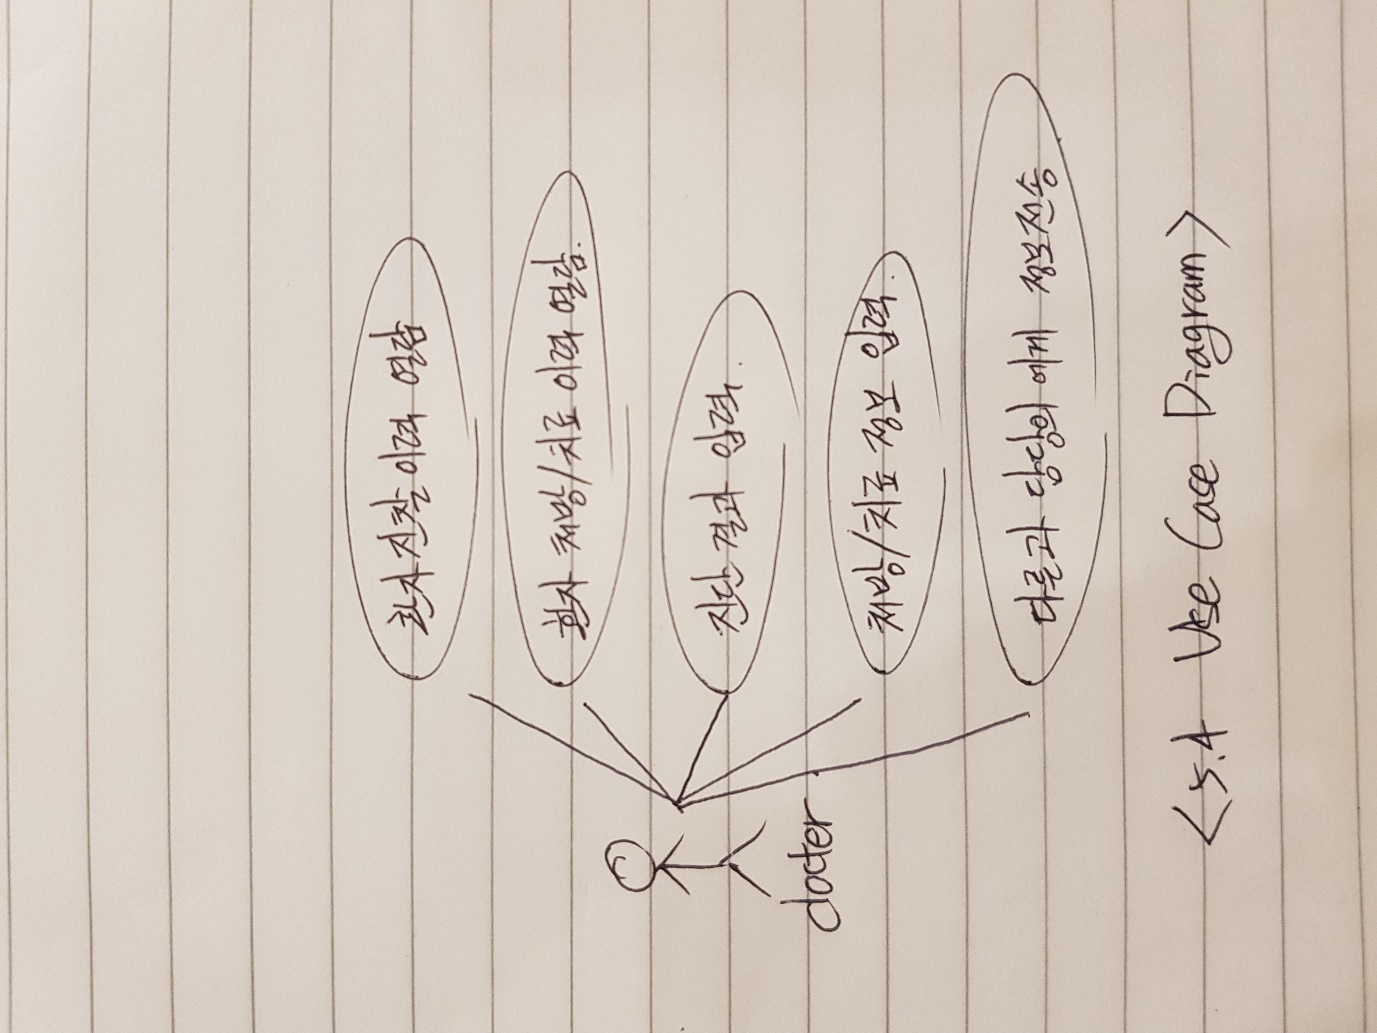 환자 진찰 이력 열람
환자 처방/치료 이력 열람.
진단 결과 입력.
처방/치료 정보 입력.
다른과 담당의 에게 정보전송
docter
<5.4 Use Case Diagram>